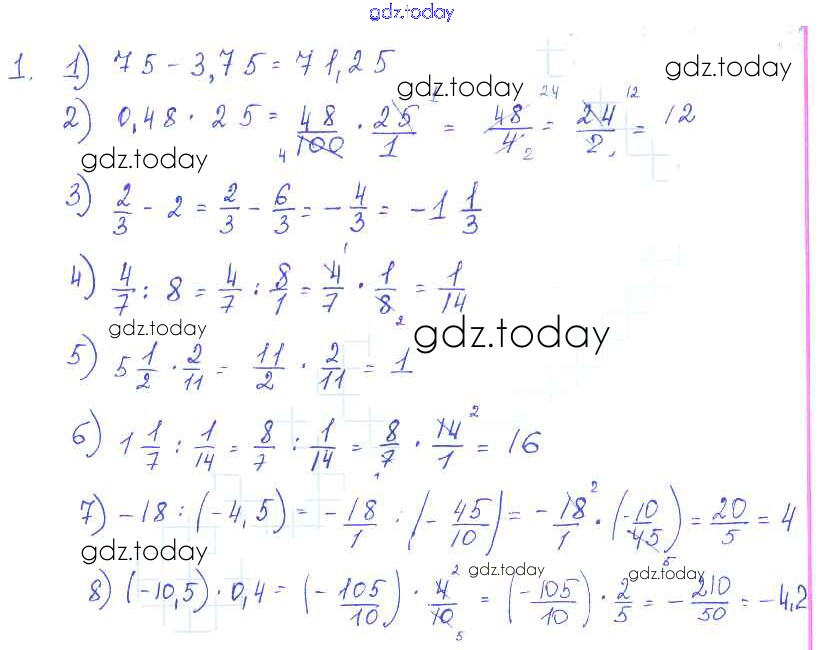 gdz.today
1. 1) 75 - 3,75 = 71,25
gdz.today gdz.today
2) 0,48 · 25 = 48/100 · 25/1 = 48/4 = 24/2 = 12
gdz.today
3) 2/3 - 2 = 2/3 - 6/3 = - 4/3 = -1 1/3
4) 4/7 : 8 = 4/7 : 8/1 = 4/7 · 1/8 = 1/14
gdz.today gdz.today
5) 5 1/2 · 2/11 = 11/2 · 2/11 = 1
6) 1 1/7 : 1/14 = 8/7 : 1/14 = 8/7 · 14/1 = 16
7) -18 : (-4,5) = - 18/1 : (- 45/10) = - 18/1 · (-10/45) = 20/5 = 4
gdz.today
8) (-10,5) · 0,4 = (- 105/10) · 4/10 = (-105/10) · 2/5 = - 210/50 = -4,2
gdz.today gdz.today